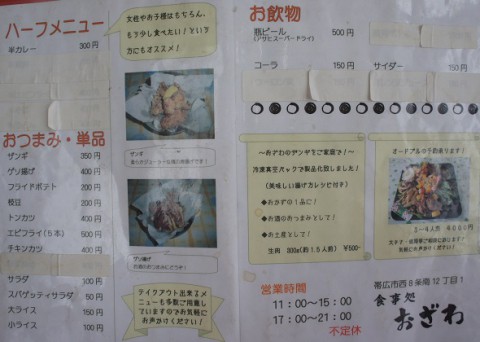 ハーフメニュー
半カレー 300円
女性やお子様はもちろん、
もう少し食べたい!という
方にもオススメ!
ザンギ
おつまみ・単品
ザンギ 350円
ゲソ揚げ 400円
フライドポテト 200円
枝豆 200円
トンカツ 400円
エビフライ(5本) 500円
チキンカツ 400円
サラダ 100円
スパゲッティサラダ
大ライス 150円
小ライス 100円
ゲソ揚げ
お酒のおつまみにどうぞ!
テイクアウト出来るメ
ニューも多数ご用意し
ていますのでお気軽に
お声かけください!
お飲物
瓶ビール 500円
(アサヒスーパードライ)
コーラ 150円
サイダー 150円
~おざわのザンギをご家庭で!~
冷凍真空パックで製品化致しました!
(美味しい揚げ方レシピ付き)
◆おかずの1品に!
◆お酒のおつまみとして!
◆お土産として!
生肉 800g(約1.5人前) ¥500-
オードブルの予約承ります!
3~4人前 4000円
お気軽にお声がけください!
営業時間
11:00~15:00
17:00~21:00
不定休
帯広市西8条南12丁目1
食事処
おざわ